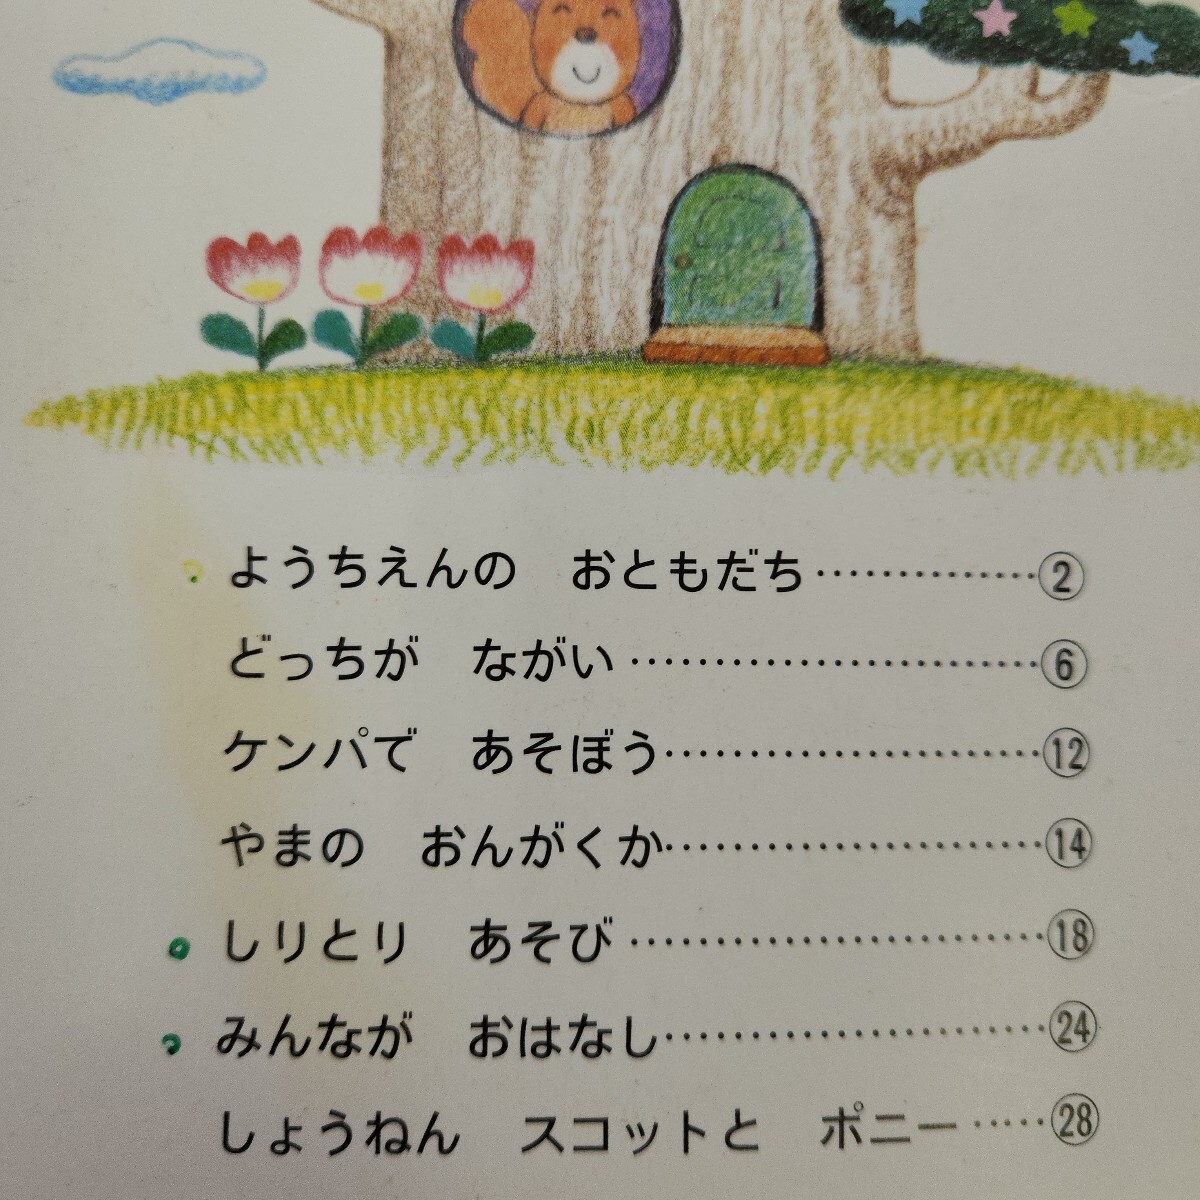 ようちえんの　おともだち……………②
どっちが　ながい……………………⑥
ケンパで　あそぼう……………………⑫
やまの　おんがくか……………………⑭
しりとり　あそび……………………⑱
みんなが　おはなし……………………㉔
しょうねん　スコットと　ポニー……㉘